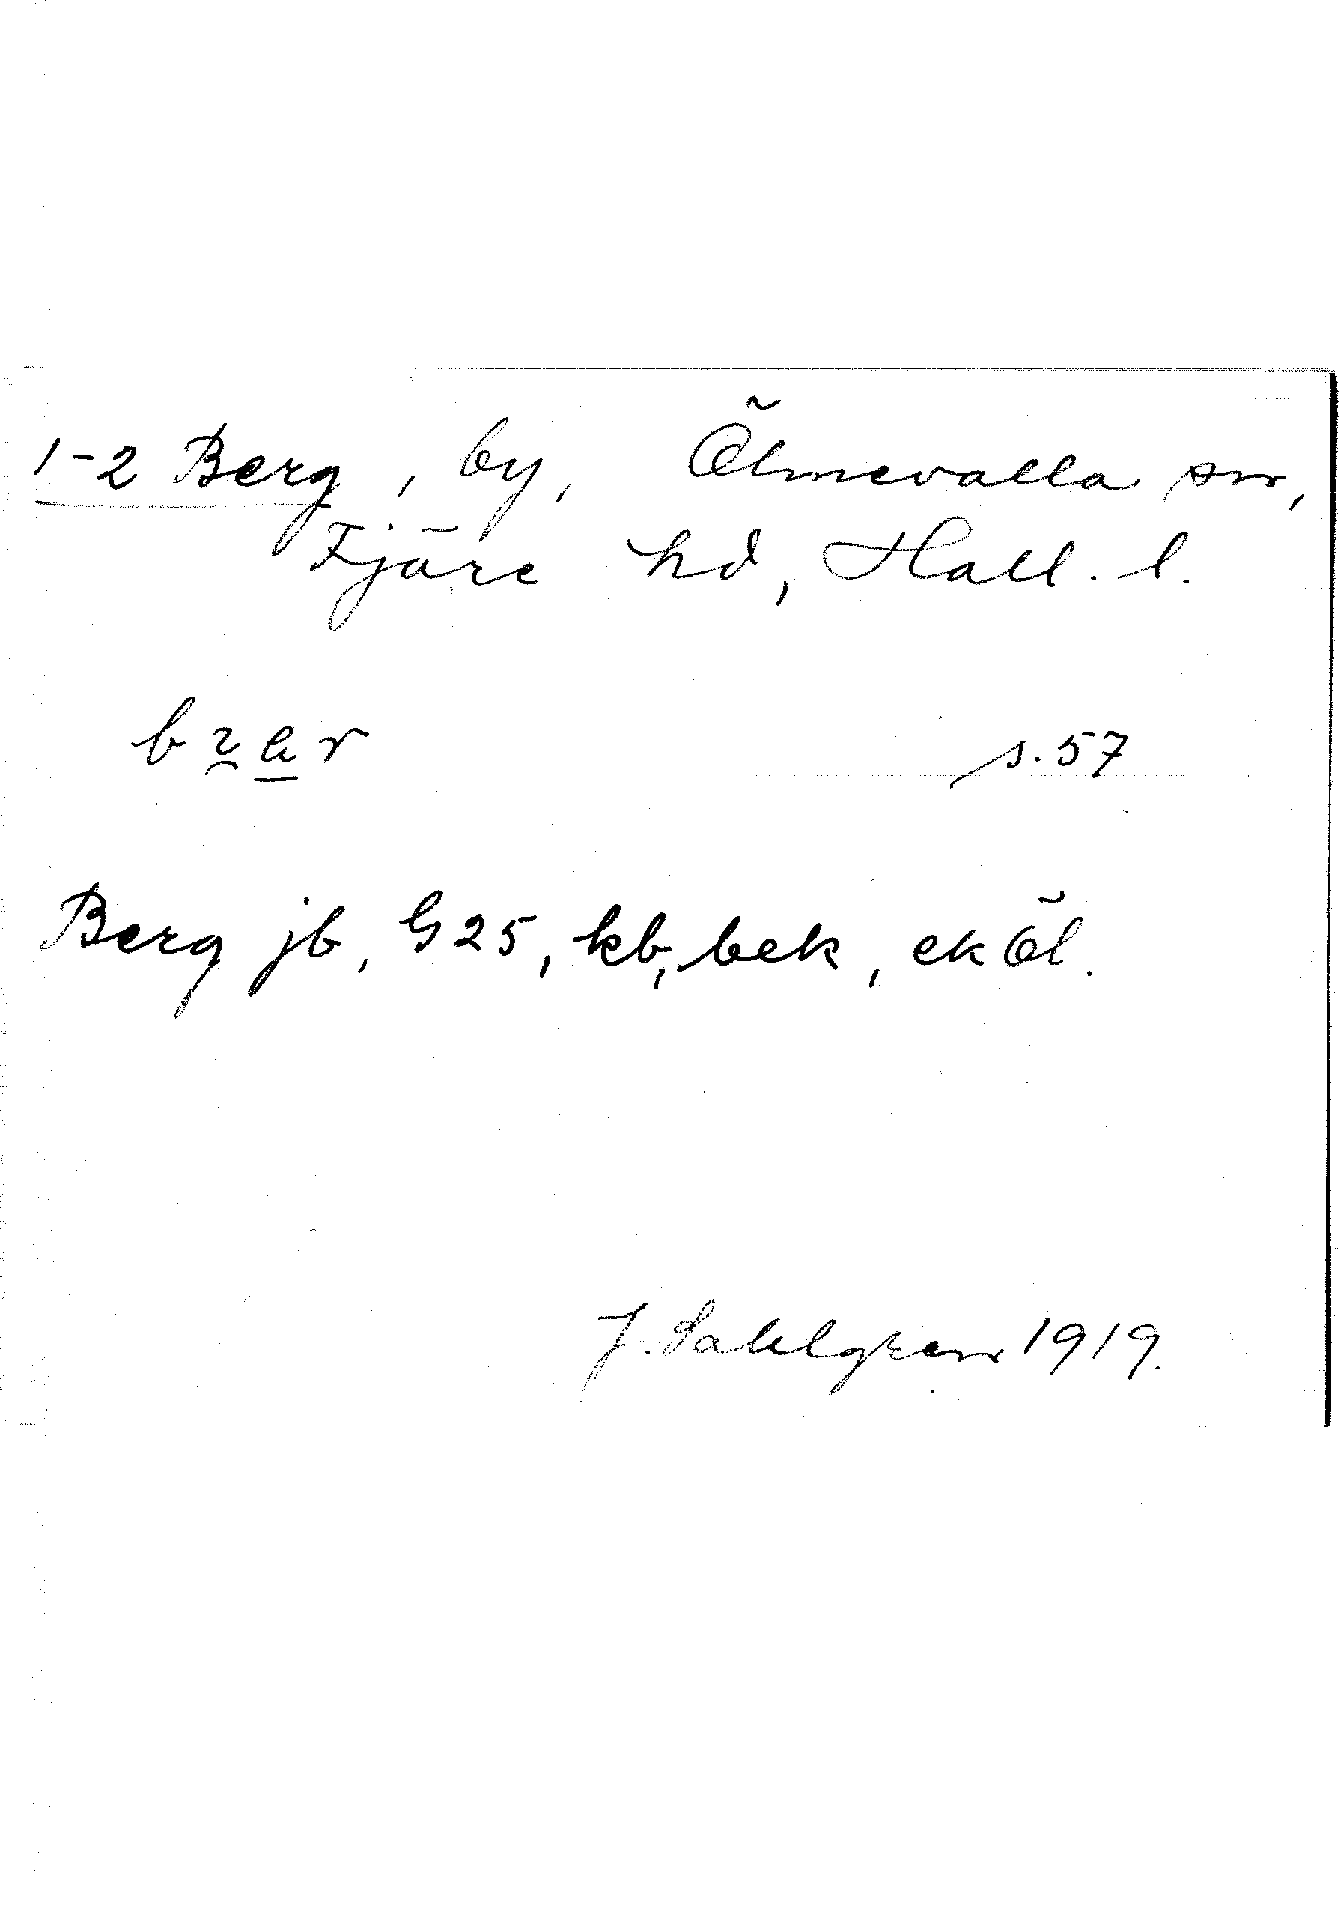 1-2 Berg, by, Ölmevalla sn,
Fjäre hd, Hall. l.
s. 57
Berg jb, G25, kb, bek, ek Öl.
J. Sahlgren 1919.